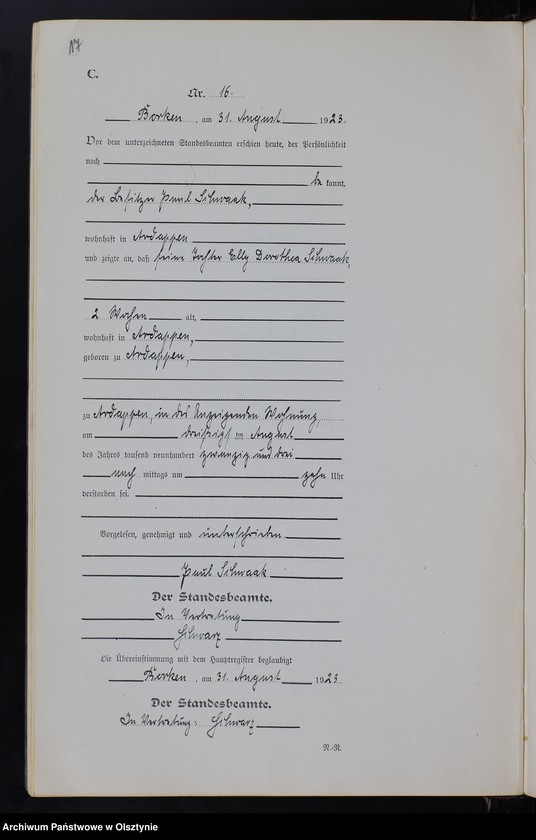 17
C.
Nr. 16.
Borken, am 31. August 1923.
Vor dem unterzeichneten Standesbeamten erschien heute, der Persönlichkeit
nach
be kannt,
der Besitzer Paul Schwaak,
wohnhaft in Ardappen
und zeigte an, daß seine Tochter Elly Dorothea Schwaak,
2 Wochen alt,
wohnhaft in Ardappen,
geboren zu Ardappen,
zu Ardappen, in des Anzeigenden Wohnung,
am dreißigsten August
des Jahres tausend neunhundert zwanzig und drei
nach mittags um zehn Uhr
verstorben sei.
Vorgelesen, genehmigt und unterschrieben
Paul Schwaak
Der Standesbeamte.
In Vertretung
Schwarz
Die Übereinstimmung mit dem Hauptregister beglaubigt
Borken, am 31. August 1923.
Der Standesbeamte.
In Vertretung: Schwarz
Archiwum Państwowe w Olsztynie